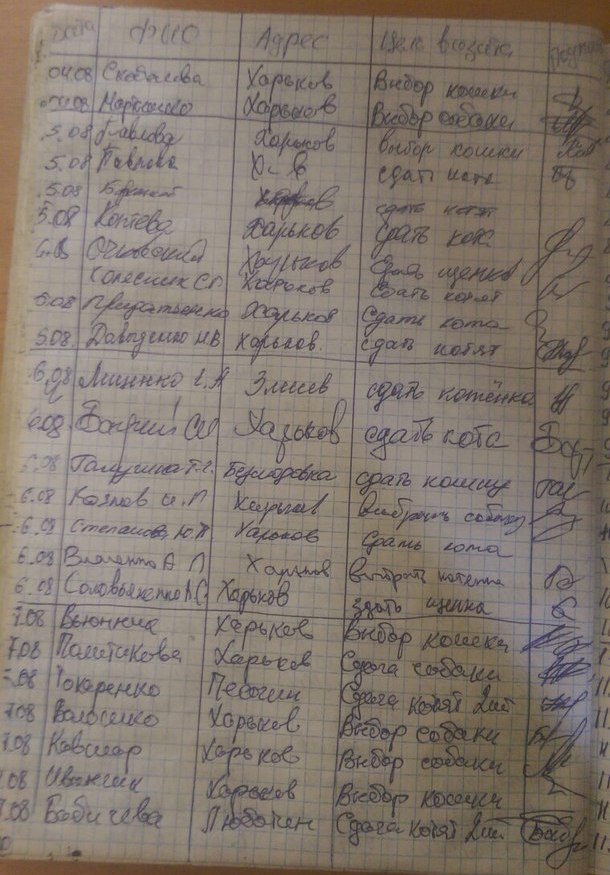 Дата ФИО Адрес Цель визита
04.08 Скобелева Харьков Выбор кошки
04.08 Харьков Выбор собаки
5.08 Павлова Харьков выбор кошки
5.08 Павлова Х-в сдать кота
5.08 Харьков сдать котят
5.08 Коптева Харьков сдать кота
6.08 Харьков Сдать щенка
Колесник С Г Харьков сдать котят
6.08 Придатченко Харьков Сдать кота
6.08. Давыденко НВ Харьков. сдать котят
6.08 Миненко І.А Змиев сдать котёнка
6.08 Харьков сдать кота
6.08 Галушка Т.Г. Безлюдовка сдать кошку
6.08 Козлов И.П Харьков Выбрать собаку
6.08 Степанов Ю.П Харьков Сдать кота
6.08 Власенко А Л Харьков выбрать котенка
6.08 Соловьяненко А.С. Харьков здать щенка
7.08 Вьюнник Харьков Выбор кошки
7.08 Политикова Харьков Сдача собаки
7.08 Токаренко Песочин Сдача котят 2шт
7.08 Волошко Харьков Выбор собаки
7.08 Кавшар Харьков Выбор собаки
7.08 Иванчик Харьков Выбор кошки
7.08 Бабичева Люботин Сдача котят 2шт.